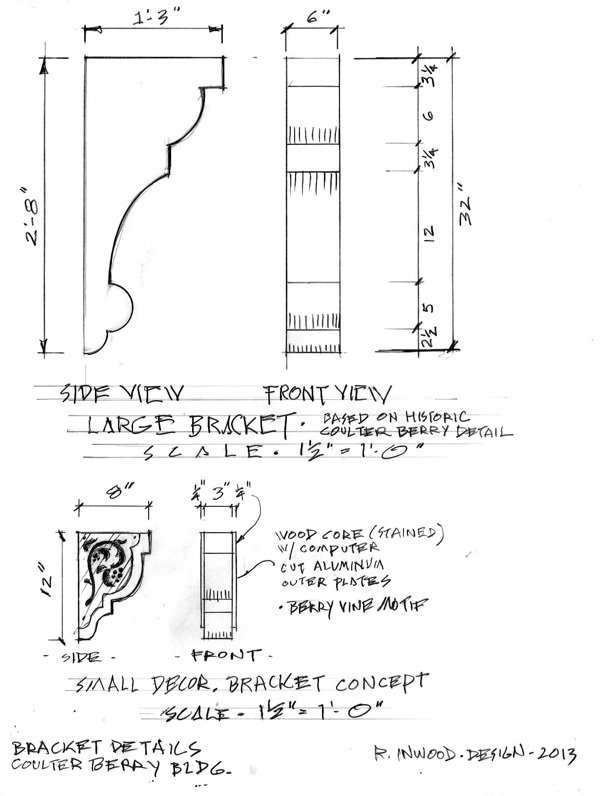 1'-3"
6"
2'-8"
3 1/4
6
3 1/4
12
5
2 1/2
32"
SIDE VIEW
FRONT VIEW
LARGE BRACKET. BASED ON HISTORIC
COULTER BERRY DETAIL
SCALE. 1 1/2" = 1'-0"
8"
1/4" 3" 1/4"
12"
WOOD CORE (STAINED)
W/ COMPUTER
CUT ALUMINUM
OUTER PLATES
• BERRY VINE MOTIF
- SIDE -
- FRONT -
SMALL DECOR. BRACKET CONCEPT
SCALE - 1 1/2" = 1'-0"
BRACKET DETAILS
COULTER BERRY BLDG.
R. INWOOD . DESIGN - 2013